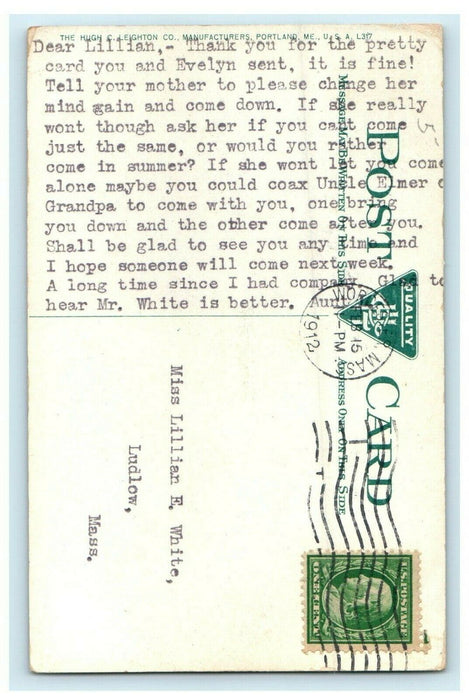 THE HUGH C. LEIGHTON CO., MANUFACTURERS, PORTLAND, ME., U.S.A. L317
Dear Lillian,- Thank you for the pretty
card you and Evelyn sent, it is fine!
Tell your mother to please change her
mind gain and come down. If she really
wont though ask her if you cant come
just the same, or would you rather
come in summer? If she wont let you come
alone maybe you could coax Uncle Elmer o
Grandpa to come with you, one bring
you down and the other come after you.
Shall be glad to see you any time and
I hope someone will come next week.
A long time since I had company. Glad to
hear Mr. White is better. Aunt
POST CARD
MESSAGE MAY BE WRITTEN ON THIS SIDE
ADDRESS ONLY ON THIS SIDE
QUALITY
MASS
15
-PM
1912
Miss Lillian E. White,
Ludlow,
Mass.
U.S. POSTAGE
ONE CENT